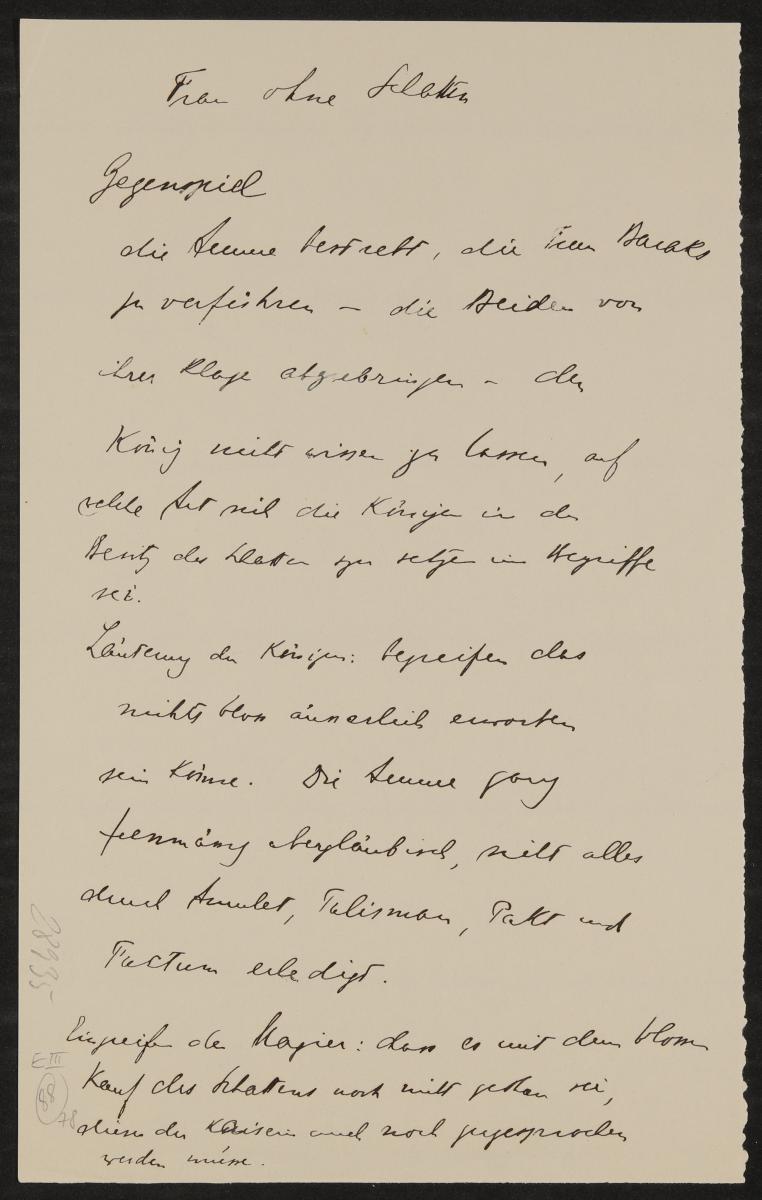 Frau ohne Schatten
Gegenspiel
die Amme bestrebt, die Frau Baraks
zu verführen – die Beiden von
ihrer Klage abzubringen – den
König nicht wissen zu lassen, auf
welche Art sich die Königin in den
Besitz des Schattens zu setzen im Begriffe
sei.
Läuterung der Königin: begreifen dass
nichts bloss äusserlich erworben
sein könne. Die Amme ganz
feenmässig abergläubisch, sieht alles
durch Amulet, Talisman, Pakt und
Factum erledigt.
Eingreifen der Magier: dass es mit dem blossen
Kauf des Schattens noch nicht gethan sei,
dieser der Kaiserin auch noch zugesprochen
werden müsse.
28935
E III
88
78